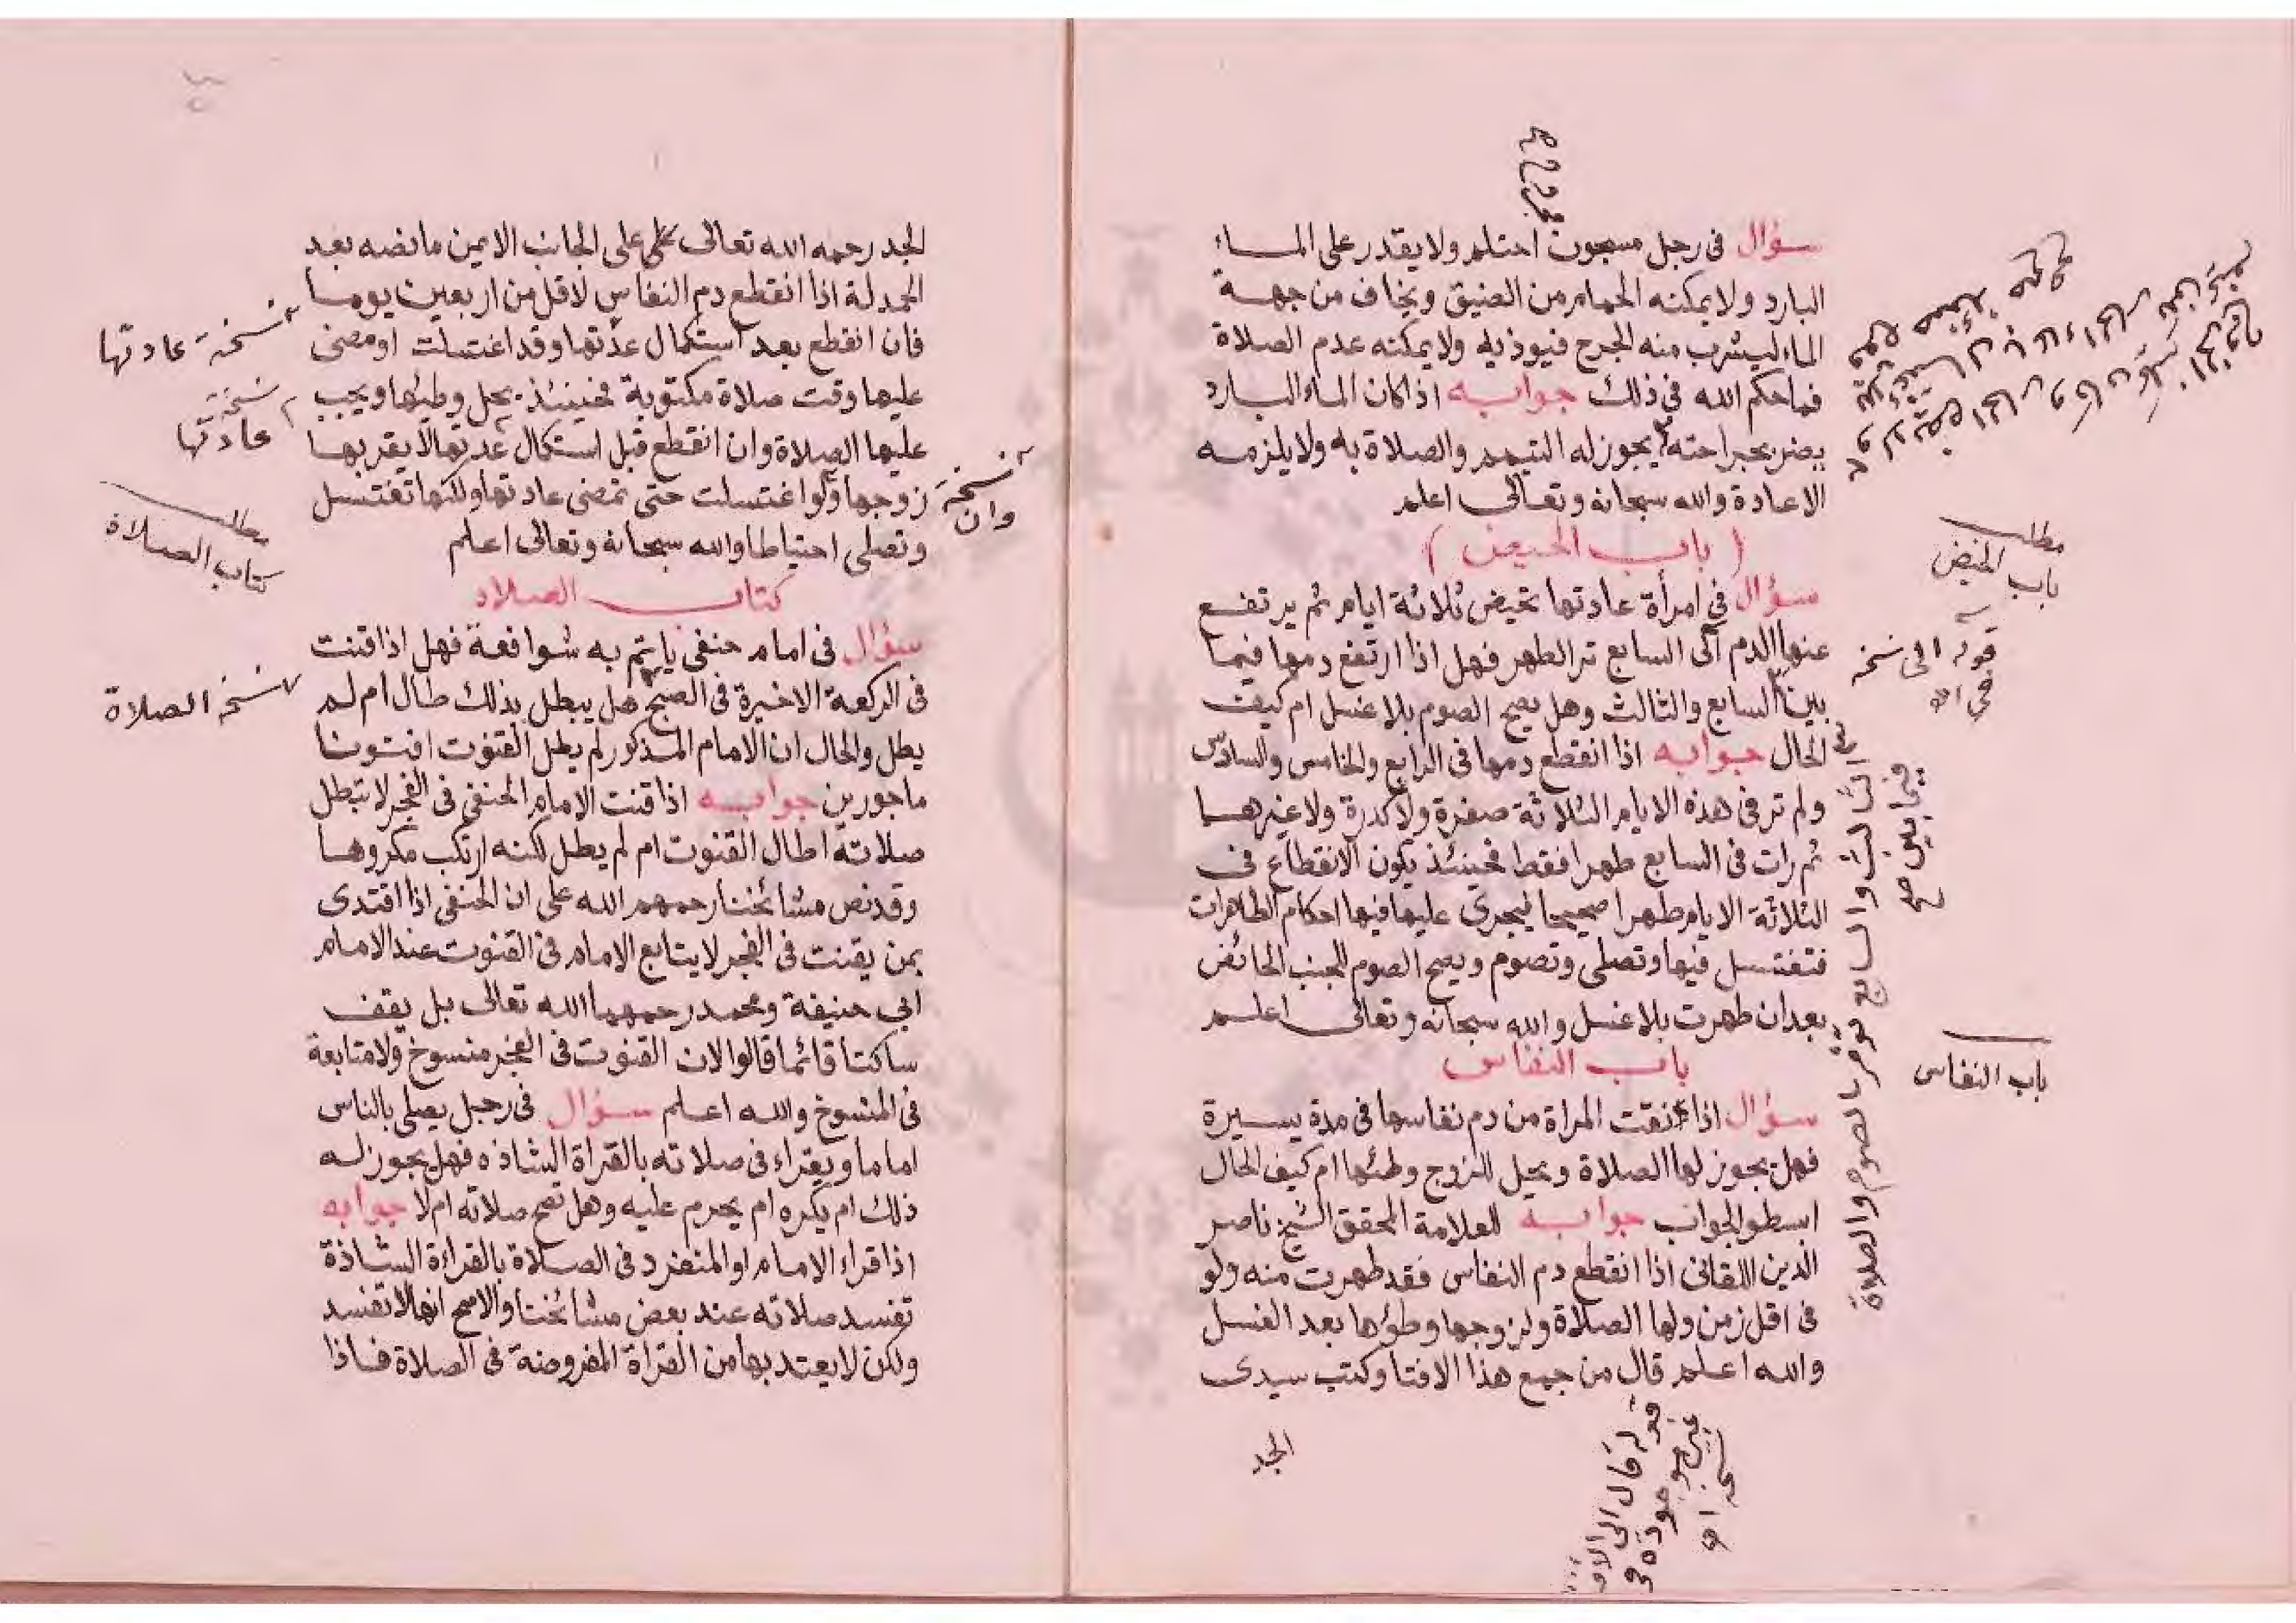 سؤال فى رجل مسجون احتلم ولا يقدر على الماء
البارد ولا يمكنه الحمام من الضيق ويخاف من جهة
الماء ليشرب منه الجرح فيوذيه ولا يمكنه عدم الصلاة
فما حكم الله فى ذلك جوابه اذا كان الماء البارد
يضر بجراحته يجوز له التيمم والصلاة به ولا يلزمه
الاعادة والله سبحانه وتعالى اعلم
( باب الحيض )
سؤال فى امرأة عادتها تحيض ثلاثة ايام ثم يرتفع
عنها الدم الى السابع تر الطهر فهل اذا ارتفع دمها فيما
بين السابع والثالث وهل يصح الصوم بلا غسل ام كيف
الحال جوابه اذا انقطع دمها فى الرابع والخامس والسادس
ولم تر فى هذه الايام الثلاثة صفرة ولا كدرة ولا غيرها
ثم رات فى السابع طهرا فقط فحينئذ يكون الانقطاع فى
الثلاثة الايام طهرا صحيحا فيجرى عليها فيها احكام الطاهرات
فتغتسل فيها وتصلى وتصوم ويصح الصوم للجنب الحائض
بعد ان طهرت بلا غسل والله سبحانه وتعالى اعلم
باب النفاس
سؤال اذا انقت المراة من دم نفاسها فى مدة يسيرة
فهل يجوز لها الصلاة ويحل للزوج وطئها ام كيف الحال
ابسطوا الجواب جوابه للعلامة المحقق الشيخ ناصر
الدين اللقانى اذا انقطع دم النفاس فقد طهرت منه ولو
فى اقل زمن ولها الصلاة ولزوجها وطؤها بعد الغسل
والله اعلم قال من جمع هذا الافتا وكتب سيدى
الجد
مطلب
باب الحيض
قوله الى نسخه
فيما بين صح
الثالث والسابع تؤمر بالصوم والصلاة
باب النفاس
قوله قال الى الاخر
غير موجودة فى
نسخة اه
الجد رحمه الله تعالى على الجانب الايمن ما نصه بعد
الحمدلة اذا انقطع دم النفاس لاقل من اربعين يوما
فان انقطع بعد استكمال عدتها وقد اغتسلت او مضى
عليها وقت صلاة مكتوبة فحينئذ يحل وطئها ويجب
عليها الصلاة وان انقطع قبل استكمال عدتها لا يقربها
زوجها ولو اغتسلت حتى تمضى عادتها ولكنها تغتسل
وتصلى احتياطا والله سبحانه وتعالى اعلم
كتاب الصلاة
سؤال فى امام حنفى ياتم به شوافعة فهل اذا قنت
فى الركعة الاخيرة فى الصبح هل يبطل بذلك طال ام لم
يطل والحال ان الامام المذكور لم يطل القنوت افتونا
ماجورين جوابه اذا قنت الامام الحنفى فى الفجر لا تبطل
صلاته اطال القنوت ام لم يطل لكنه ارتكب مكروها
وقد نص مشائخنا رحمهم الله على ان الحنفى اذا اقتدى
بمن يقنت فى الفجر لا يتابع الامام فى القنوت عند الامام
ابى حنيفة ومحمد رحمهما الله تعالى بل يقف
ساكتا قائما قالوا لان القنوت فى الفجر منسوخ ولا متابعة
فى المنسوخ والله اعلم سؤال فى رجل يصلى بالناس
اماما ويقراء فى صلاته بالقراة الشاذه فهل يجوز له
ذلك ام يكره ام يحرم عليه وهل تصح صلاته ام لا جوابه
اذا قراء الامام او المنفرد فى الصلاة بالقراءة الشاذة
تفسد صلاته عند بعض مشائخنا والاصح انها لا تفسد
ولكن لا يعتد بها من القراة المفروضة فى الصلاة فاذا
نسخة عادتها
نسخة
عادتها
نسخة
وان
مطلب
كتاب الصلاة
نسخة الصلاة